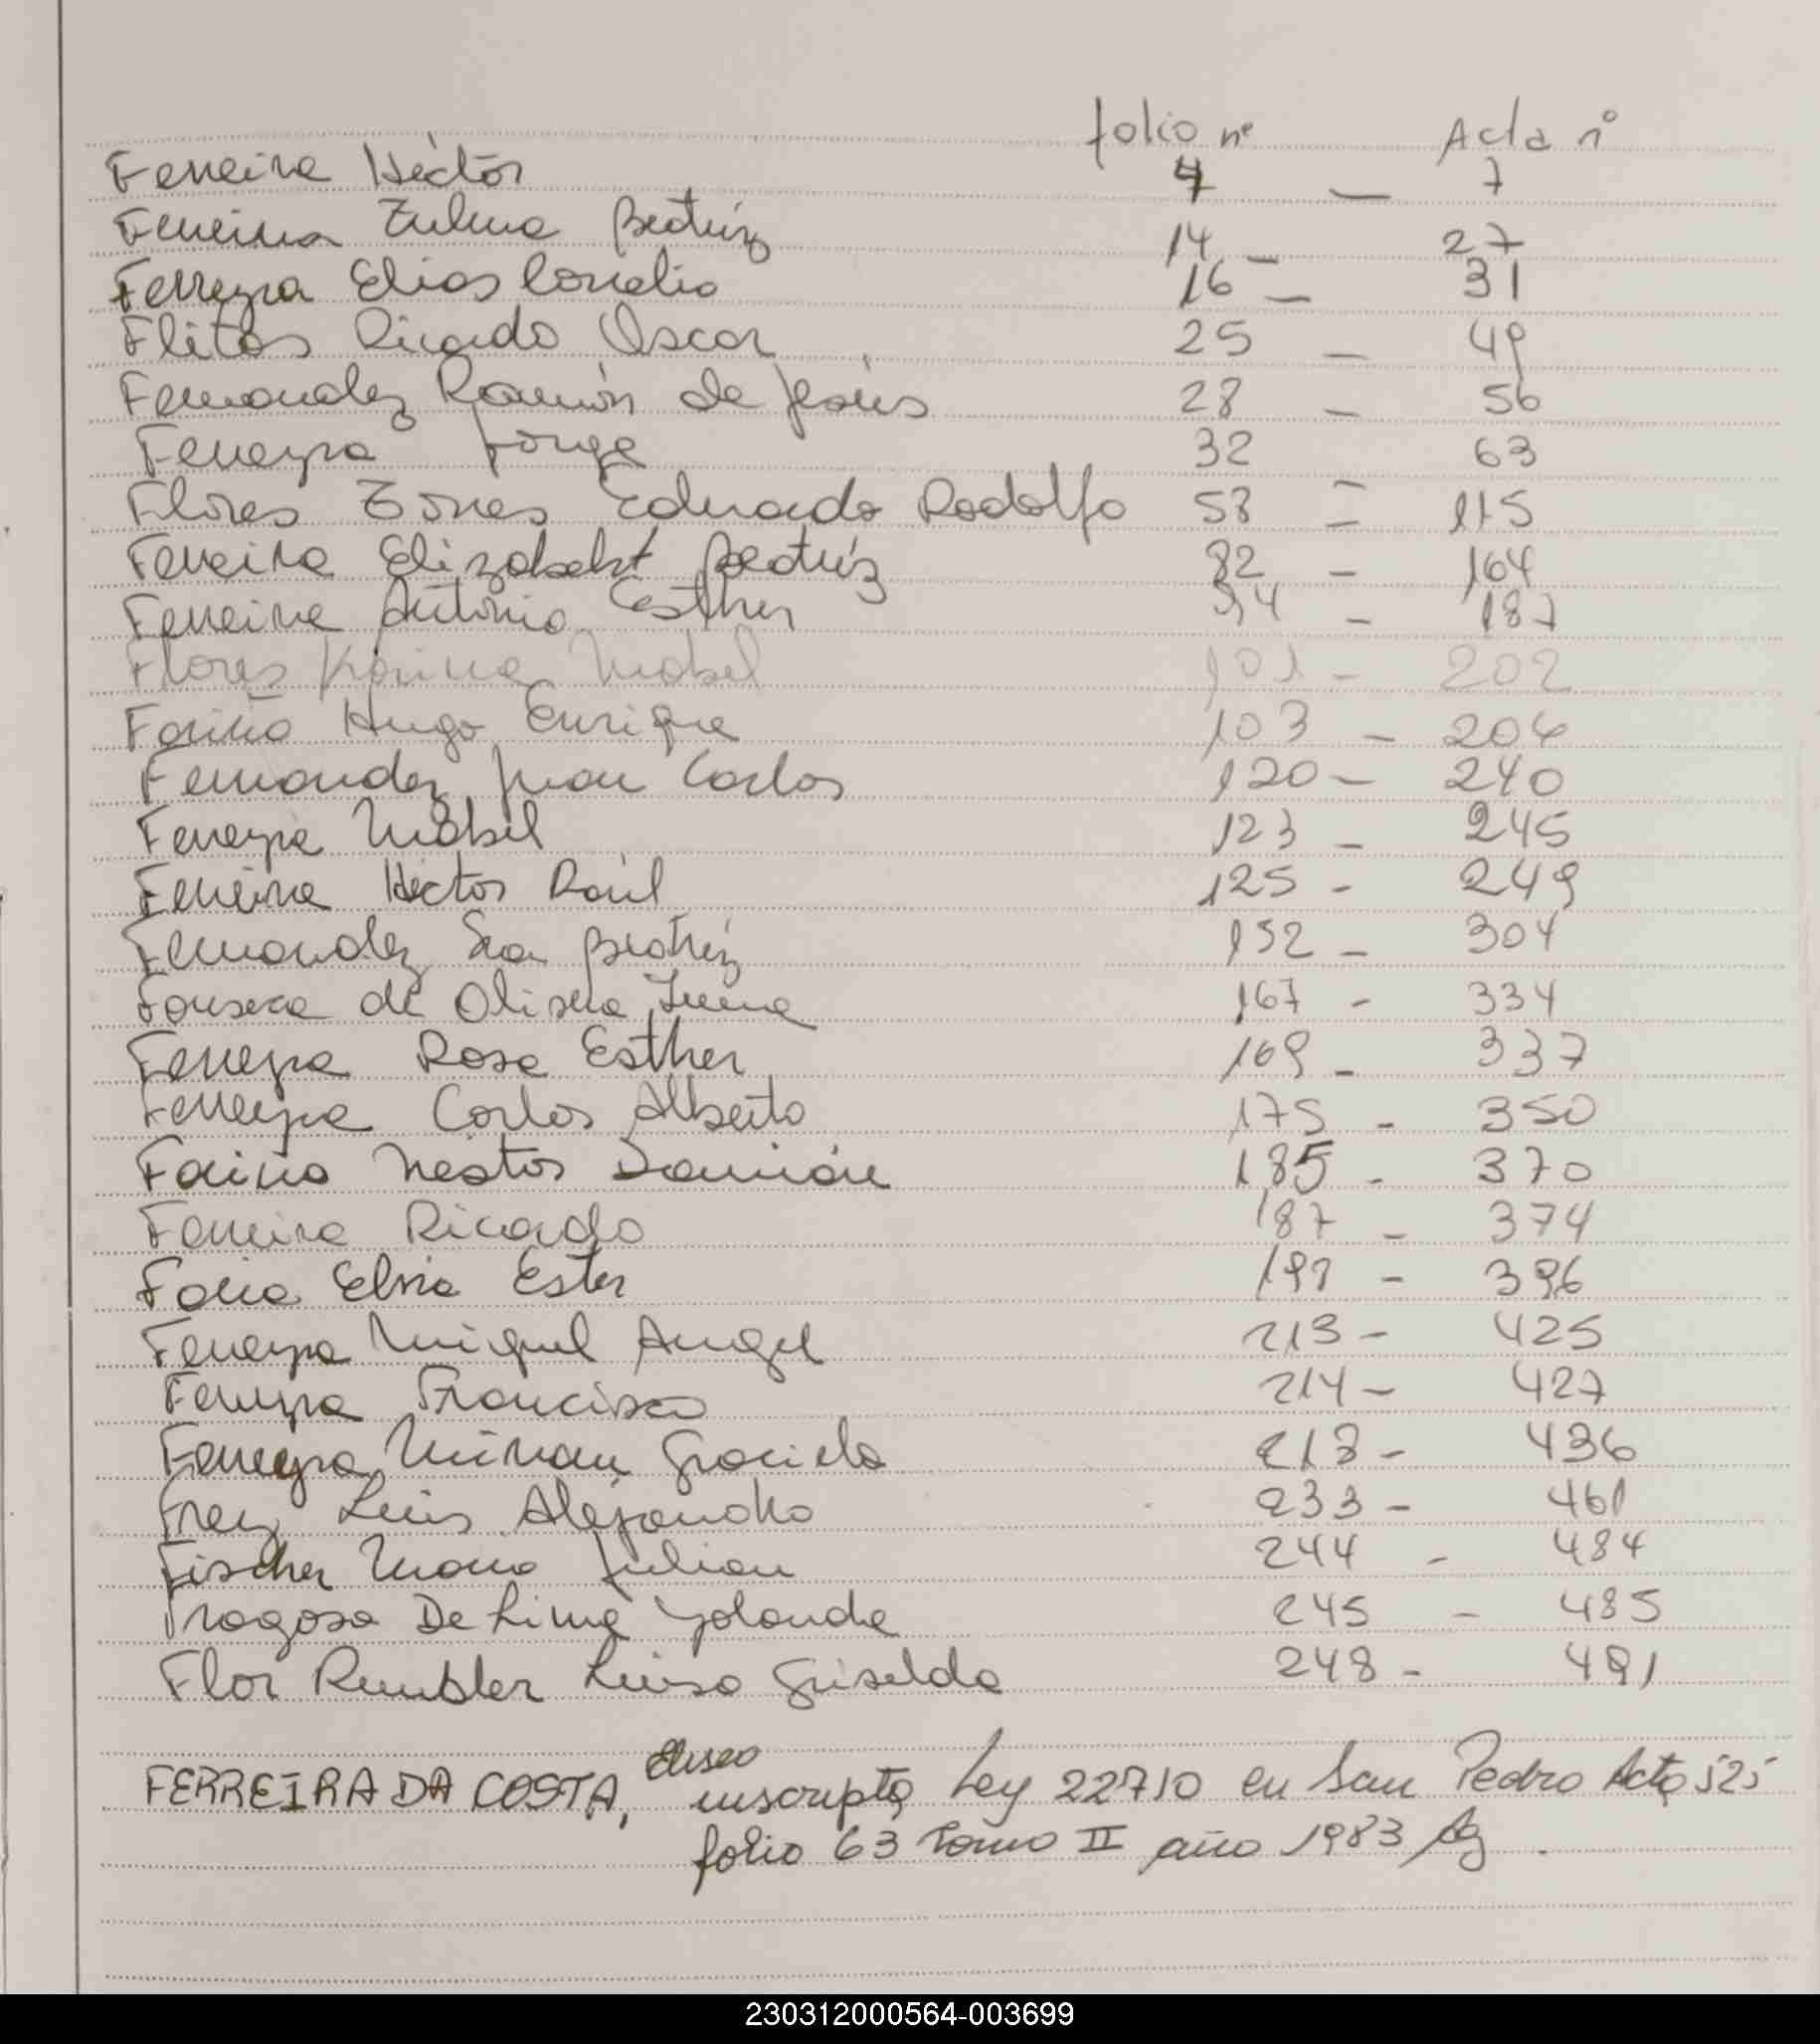 folio nº Acta nº
Ferreira Héctor 4 — 7
Ferreira Zulma Beatríz 14 — 27
Ferreyra Elias Cornelio 16 — 31
Fleitas Ricardo Oscar 25 — 49
Fernandez Ramón de Jesús 28 — 56
Ferreyra Jorge 32 — 63
Flores Torres Eduardo Rodolfo 58 — 115
Ferreira Elizabeht Beatríz 82 — 164
Ferreira Antonia Esther 94 — 187
Flores Karina Mabel 101 — 202
Fariña Hugo Enrique 103 — 206
Fernandez Juan Carlos 120 — 240
Ferreyra Mabel 123 — 245
Ferreira Héctor Raúl 125 - 249
Fernandez Beatríz 152 — 304
Fonseca de Olivera Irena 167 - 334
Ferreyra Rosa Esther 169 - 337
Ferreyra Carlos Alberto 175 - 350
Fariña Nestor Damián 185 - 370
Ferreira Ricardo 187 - 374
Faria Elvia Ester 198 - 396
Ferreyra Miguel Angel 213 - 425
Ferreyra Francisco 214 - 427
Ferreyra Mirian Graciela 218 - 436
Frey Luis Alejandro 233 - 461
Fischer Mario Julian 244 - 484
Fragoso De Lima Yolanda 245 - 485
Flor Rumbler Luisa Griselda 248 - 491
Eliseo
FERREIRA DA COSTA, inscripto Ley 22710 en San Pedro Acta 525
folio 63 Tomo II año 1983
230312000564-003699